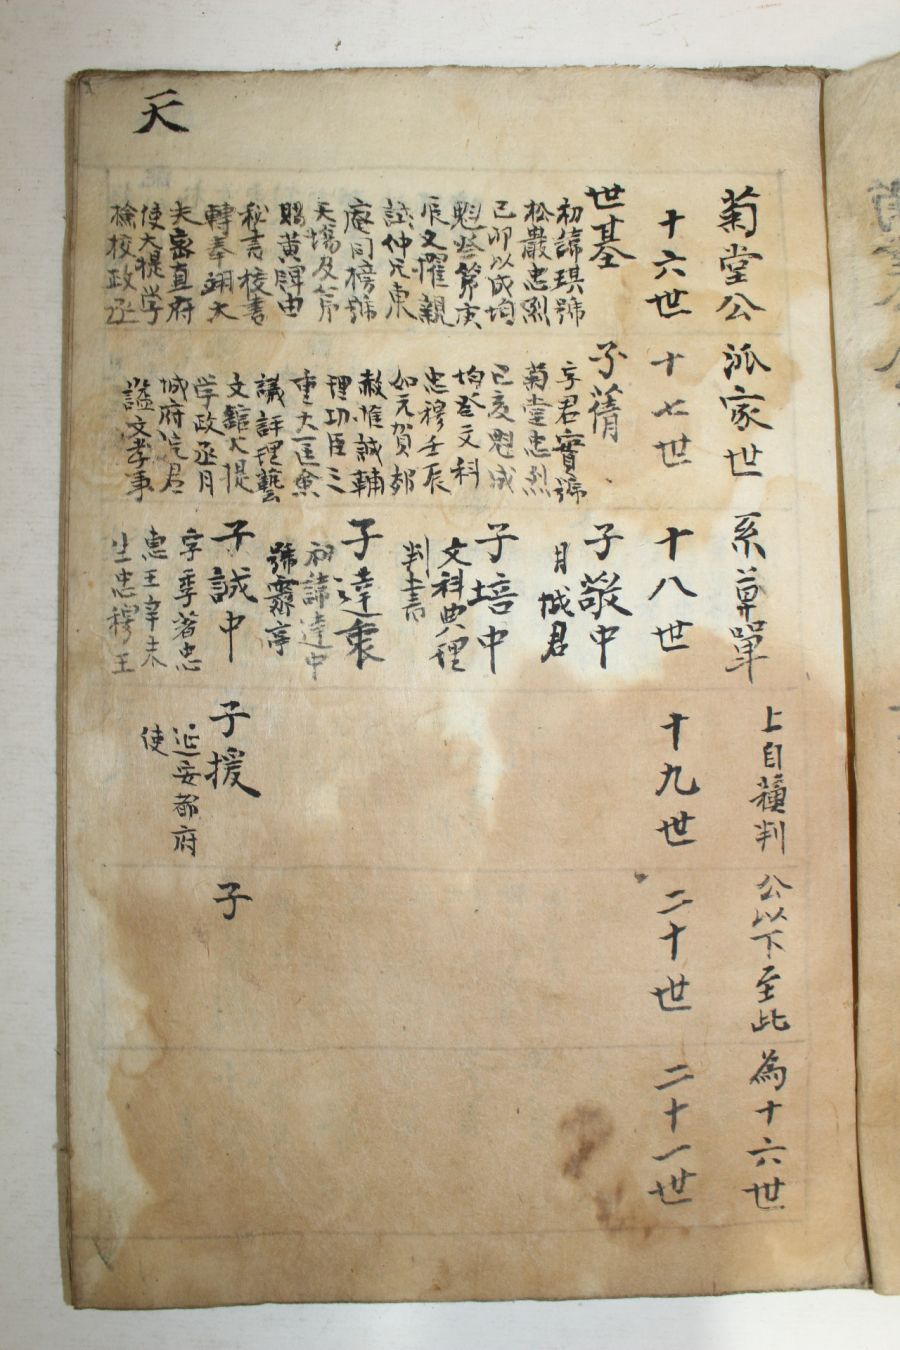 天
菊堂公派家世系草單
上自蘓判公以下至此為十六世
十六世
十七世
十八世
十九世
二十世
二十一世
世基
初諱琪號
松巖忠烈
己卯以成均
魁登第庚
辰文擢親
試仲兄東
庵同榜號
天場及第
賜黃牌由
秘書校書
轉奉翊大
夫密直府
使大提学
檢校政丞
子蒨
字君實號
菊堂忠烈
己亥魁成
均登文科
忠穆壬辰
如元賀郊
赦推誠輔
理功臣三
重大匡僉
議評理藝
文館大提
学政丞月
城府院君
諡文孝事
子敬中
月城君
子培中
文科典理
判書
子達衷
初諱達中
號霽亭
子誠中
字季著忠
惠王辛未
生忠穆王
子援
延安都府
使
子